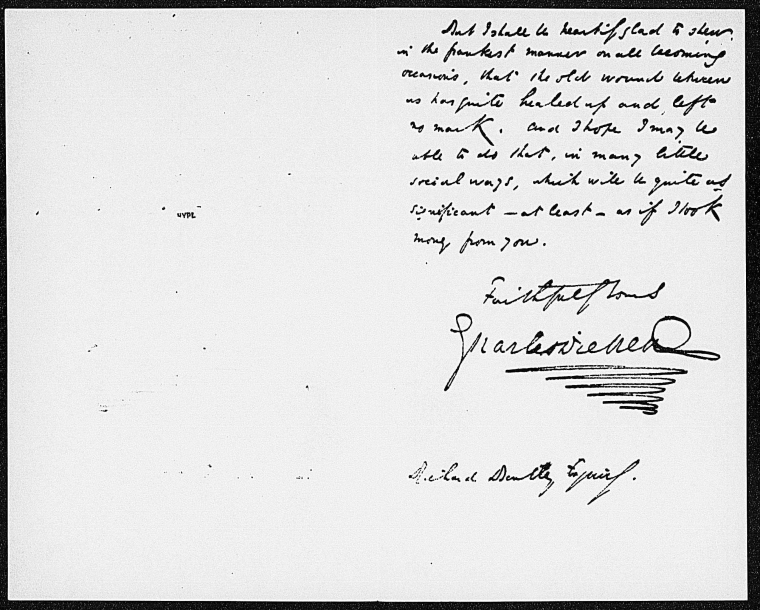 But I shall be heartily glad to shew,
in the frankest manner on all becoming
occasions, that the old wound between
us has quite healed up and left
no mark. And I hope I may be
able to do that, in many little
social ways, which will be quite as
significant – at least – as if I took
money from you.
Faithfully Yours
Charles Dickens
Richard Bentley Esquire.
NYPL